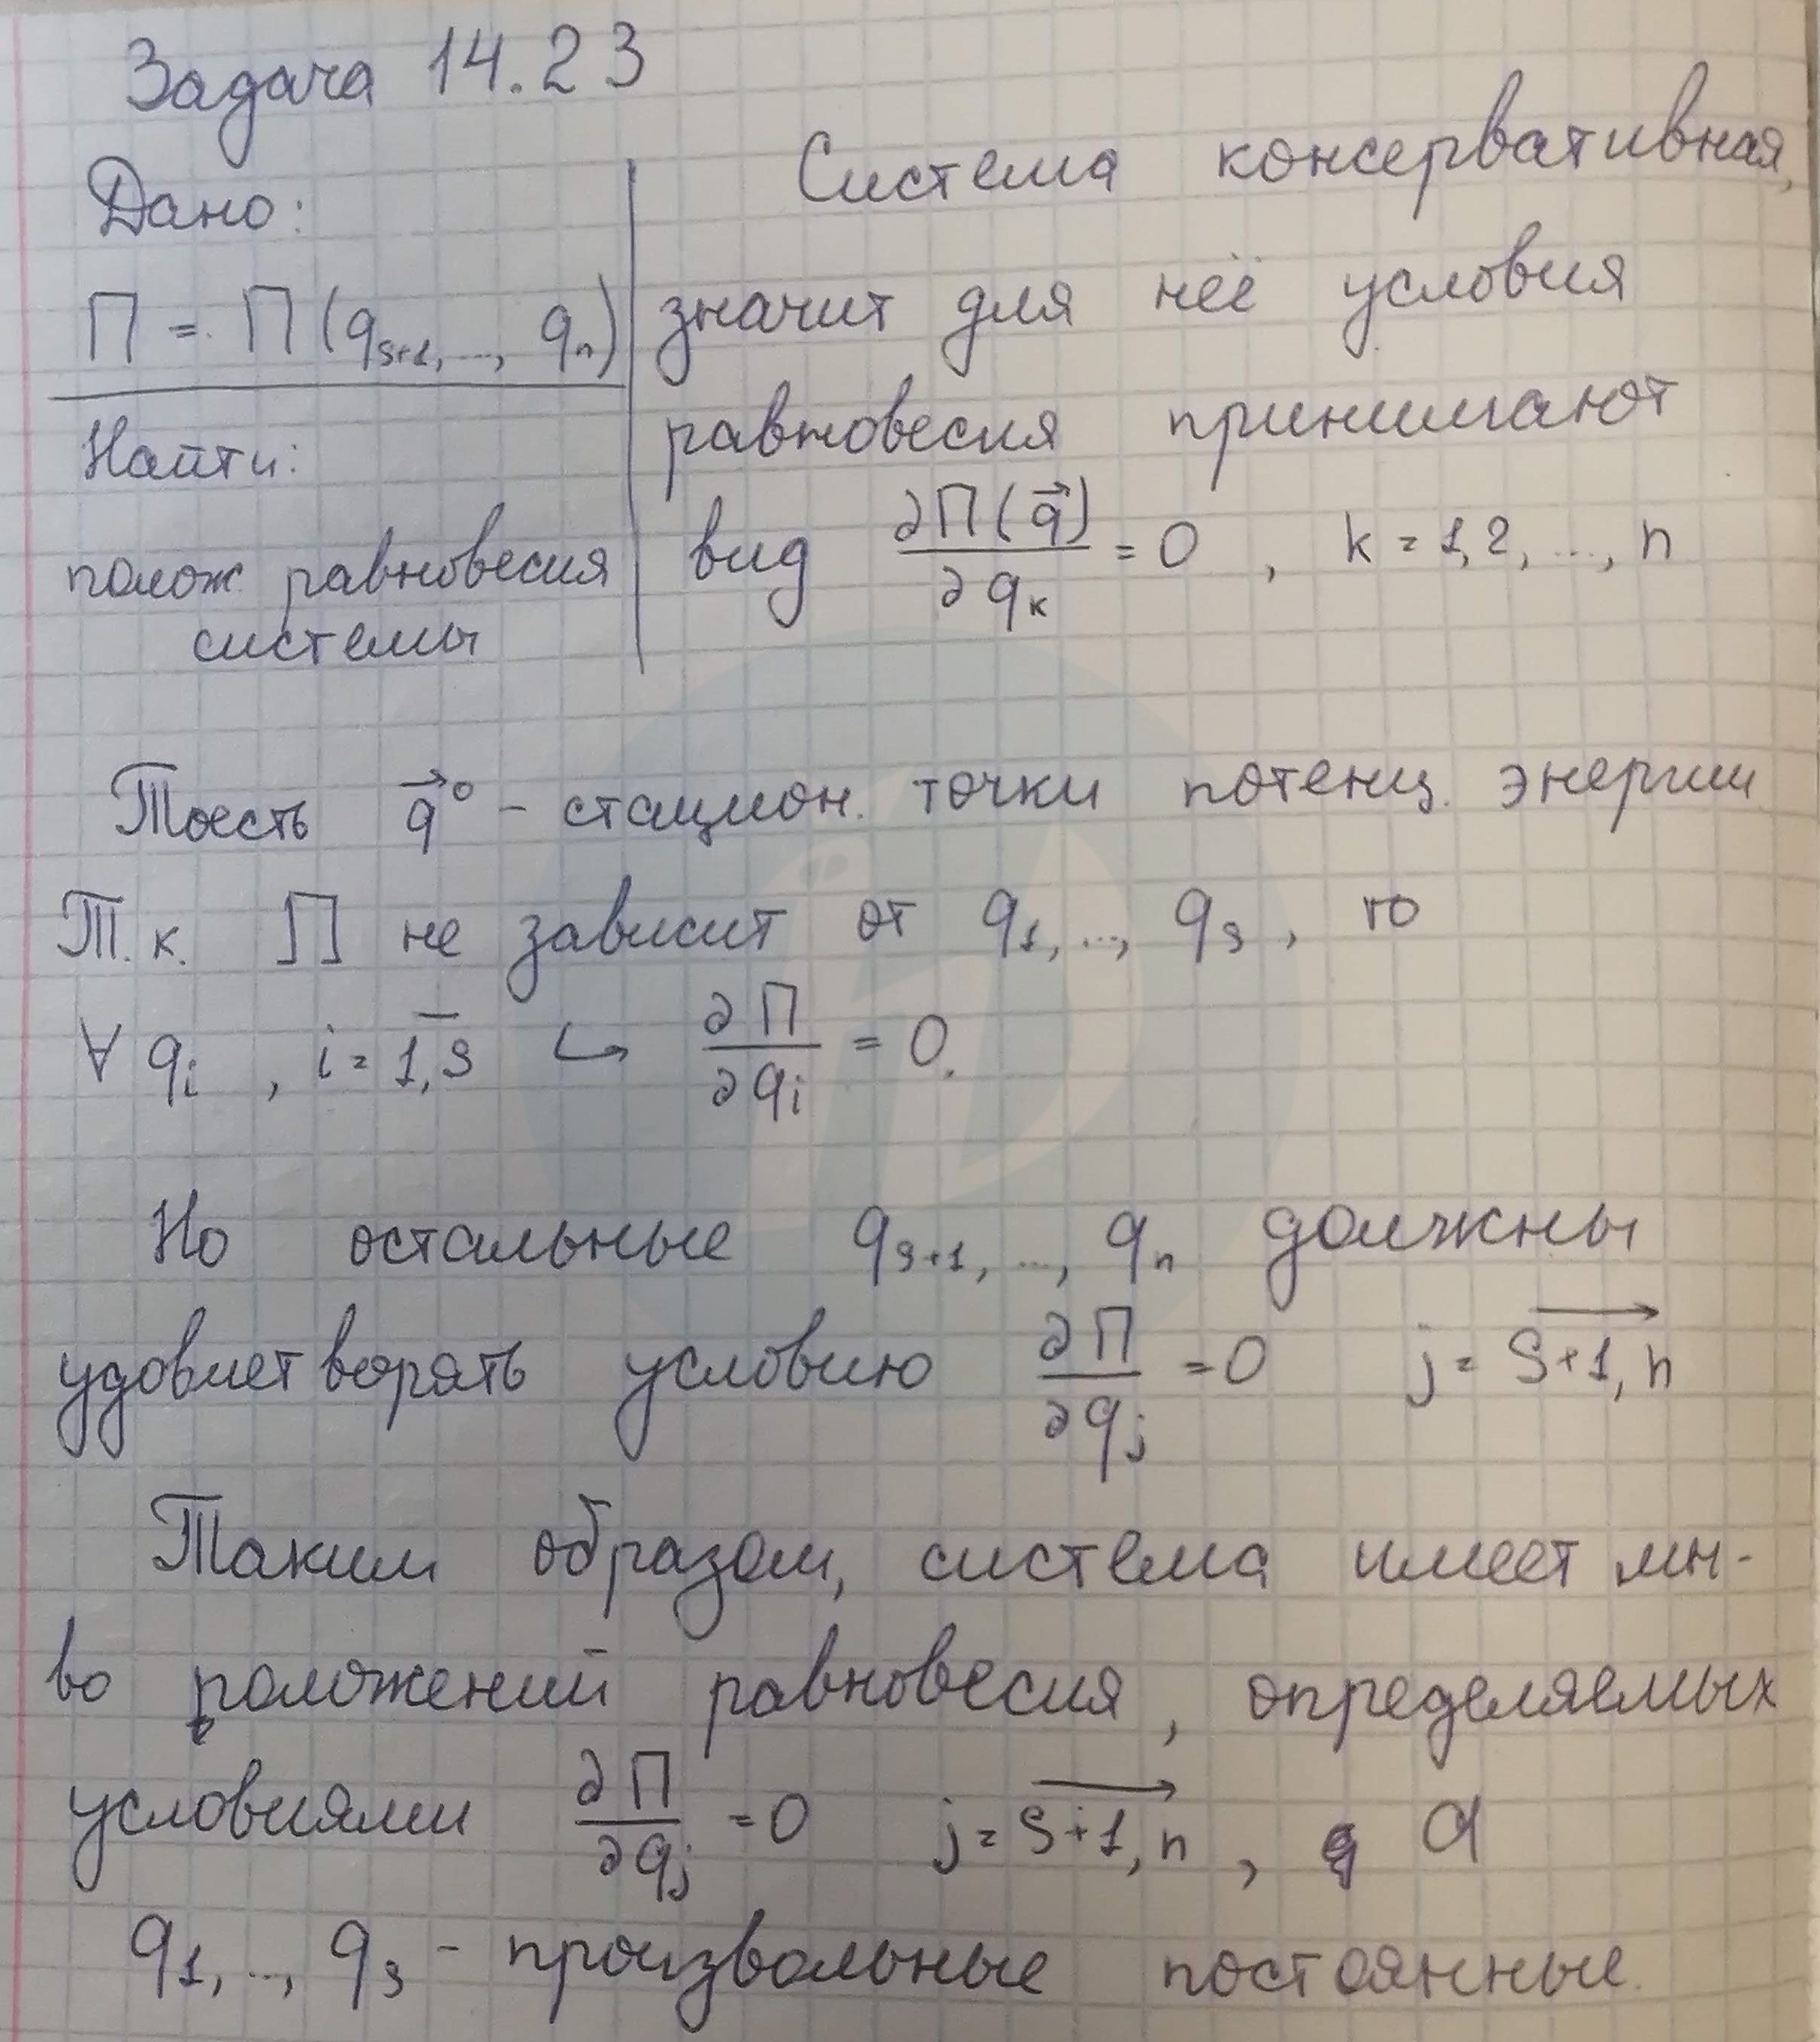 Задача 14.23
Дано:
П = П(q_{s+1}, ..., q_n)
Найти:
полож. равновесия
системы
Система консервативная,
значит для неё условия
равновесия принимают
вид ∂П(q⃗)/∂q_k = 0 , k = 1,2, ..., n
Тоесть q⃗° - стацион. точки потенц. энергии
Т.к. П не зависит от q_1, ..., q_s, то
∀ q_i , i = \overline{1,s} ↪ ∂П/∂q_i = 0.
Но остальные q_{s+1}, ..., q_n должны
удовлетворять условию ∂П/∂q_j = 0 j = \overrightarrow{s+1, n}
Таким образом, система имеет мн-
во положений равновесия, определяемых
условиями ∂П/∂q_j = 0 j = \overrightarrow{s+1, n} , а
q_1, ..., q_s - произвольные постоянные.